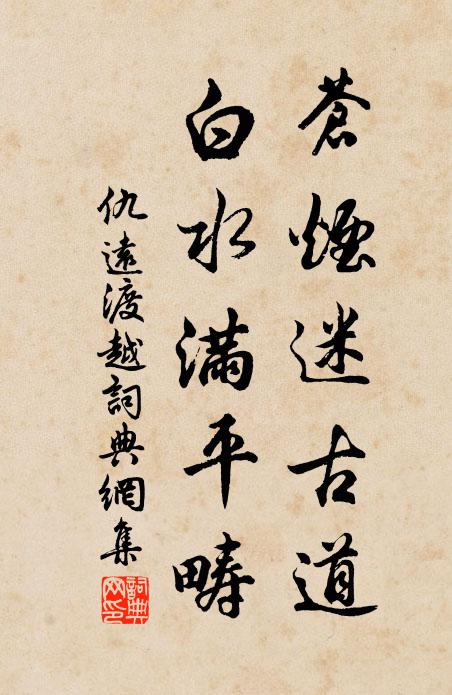 蒼煙迷古道
白水滿平疇
仇遠渡越詞典網集
詞典網印